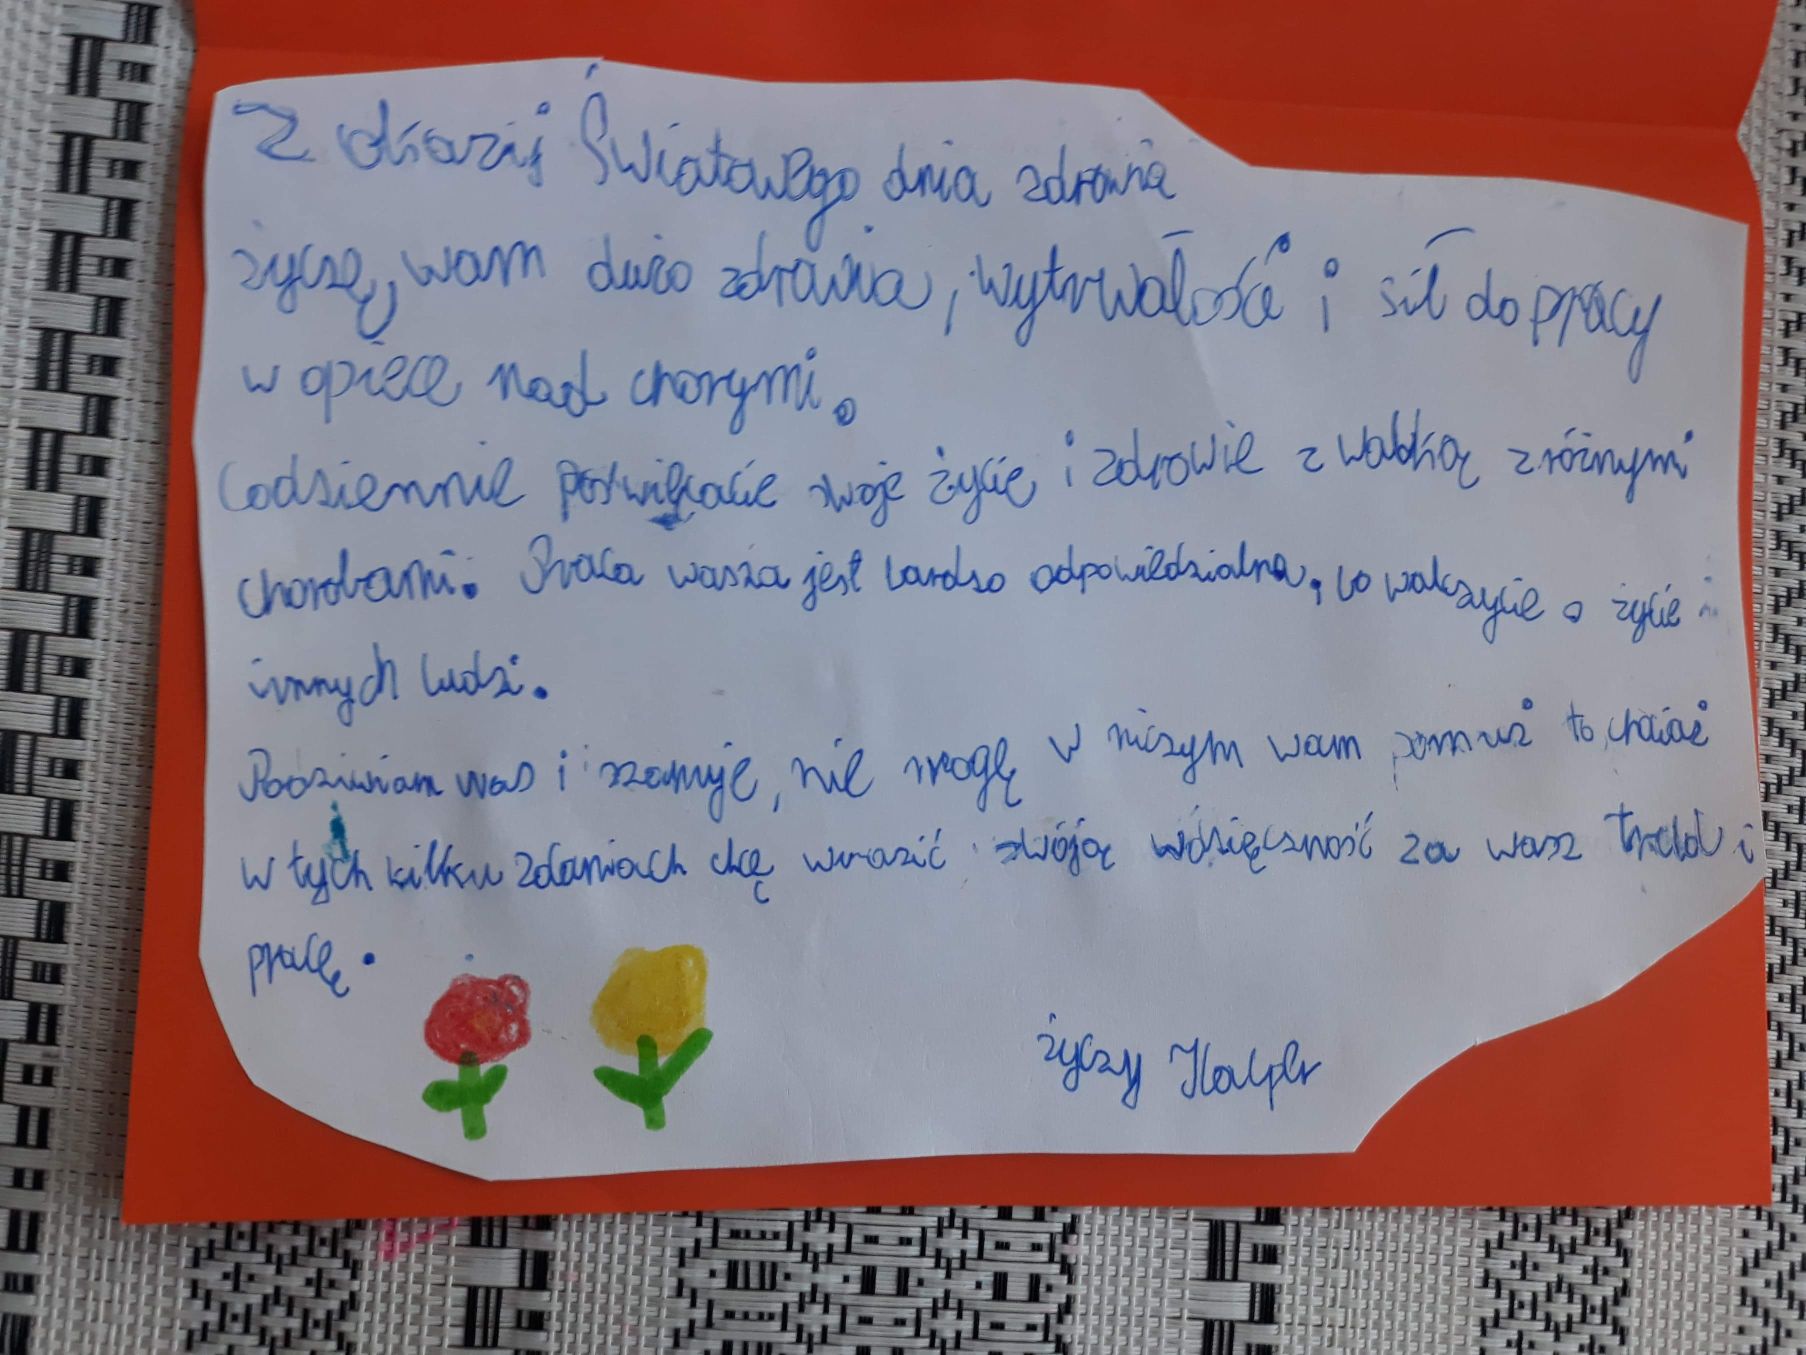 Z okazij Światowego dnia zdrowia
życzę, wam dużo zdrowia, wytrwałości i sił do pracy
w opiece nad chorymi.
Codziennie poświęcacie swoje życie i zdrowie z walką z różnymi
chorobami. Praca wasza jest bardzo odpowiedzialna, bo walczycie o życie
innych ludzi.
Podziwiam was i szanuje, nie mogę w niczym wam pomuż to chciaż
w tych kilku zdaniach chcę wyrazić swóją wdzięczność za wasz trud i
pracę.
życzy Kacper